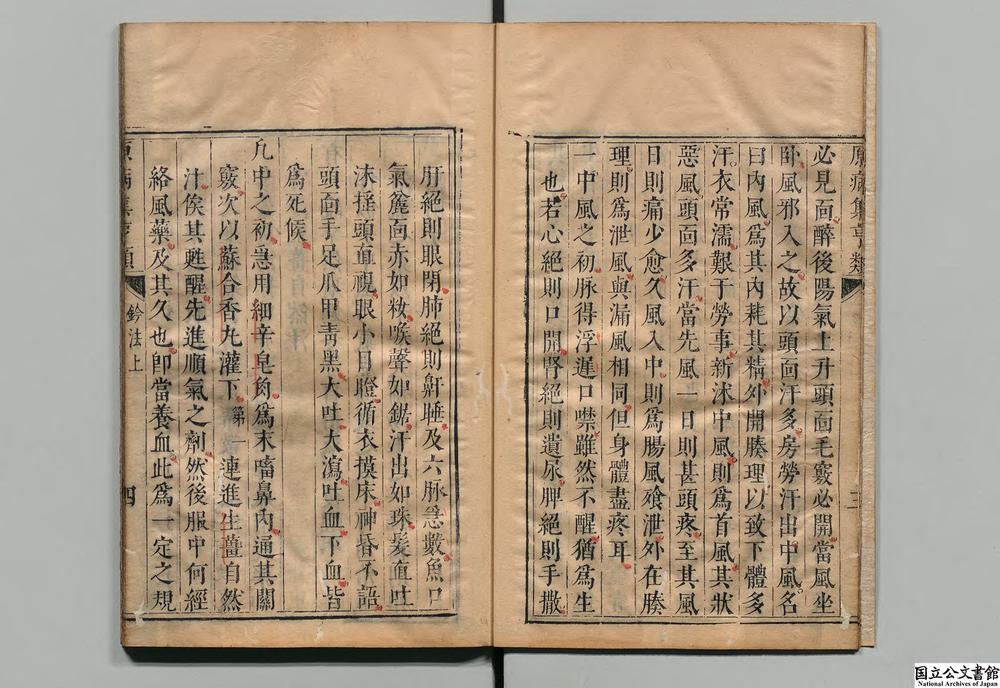 原病集亨類
三
必見面醉後陽氣上升頭面毛竅必開當風坐
臥風邪入之故以頭面汗多房勞汗出中風名
曰內風爲其內耗其精外開腠理以致下體多
汗衣常濡艱于勞事新沐中風則爲首風其狀
惡風頭面多汗當先風一日則甚頭疼至其風
日則痛少愈久風入中則爲腸風飱泄外在腠
理則爲泄風與漏風相同但身體盡疼耳
一中風之初脉得浮遲口噤雖然不醒猶爲生
也若心絕則口開腎絕則遺尿脾絕則手撒
肝絕則眼閉肺絕則鼾睡及六脉急數魚口
氣麄面赤如妝喉聲如鋸汗出如珠髮直吐
沫揺頭直視眼小目瞪循衣摸床神昏不語
頭面手足爪甲青黑大吐大瀉吐血下血皆
爲死候
凢中之初急用細辛皂角爲末㗜鼻內通其關
竅次以蘇合香丸灌下第一連進生薑自然
汁俟其甦醒先進順氣之劑然後服中何經
絡風藥及其久也卽當養血此爲一定之規
鈐法上
四
国立公文書館
National Archives of Japan